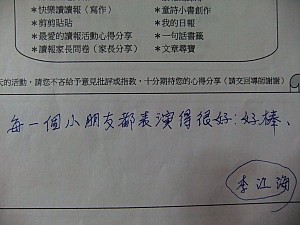 ＊快樂讀讀報（寫作）　＊童詩小書創作
＊剪剪貼貼　＊我的日報
＊最愛的讀報活動心得分享　＊一句話書籤
＊讀報家長問卷（家長分享）　＊文章尋寶
天的活動，請您不吝給予意見批評或指教，十分期待您的心得分享（請交回導師謝謝）
每一個小朋友都表演得很好！好棒、
李江海